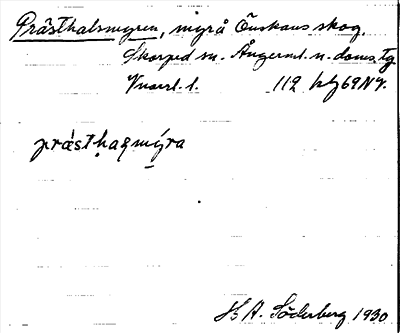 Prästhalsmyren, myrå Önskans skog.
Skorped sn. Ångerml. n. doms. tg
Vnorrl. l. 112 hfg69NV.
prästhaꞎmýra
K. A. Söderberg 1930